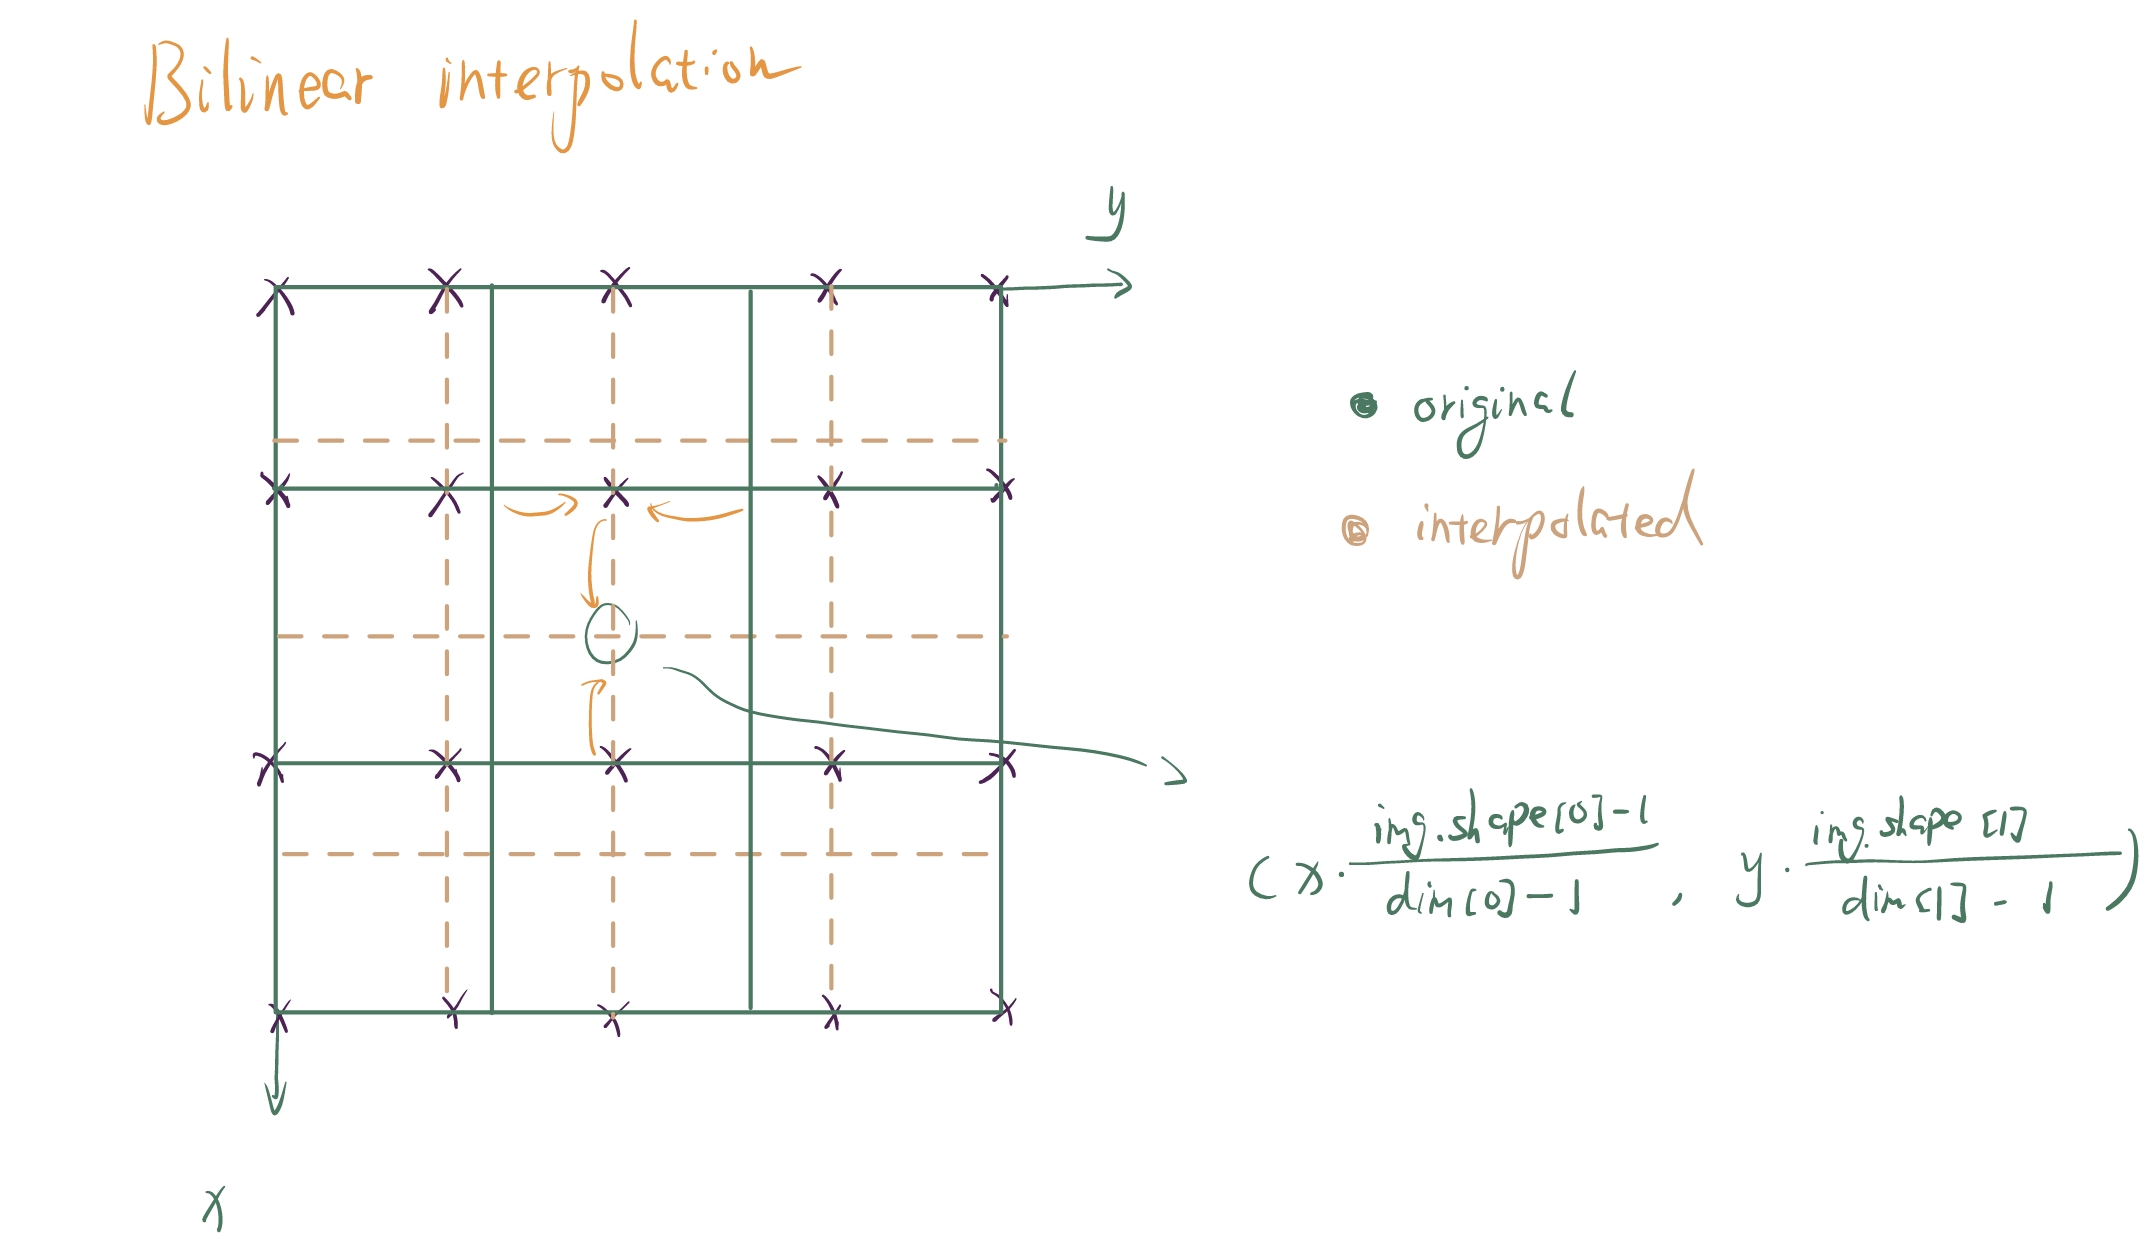 Bilinear interpolation
y
original
interpolated
(x · img.shape[0]-1 / dim[0]-1 , y · img.shape[1] / dim[1]-1)
x